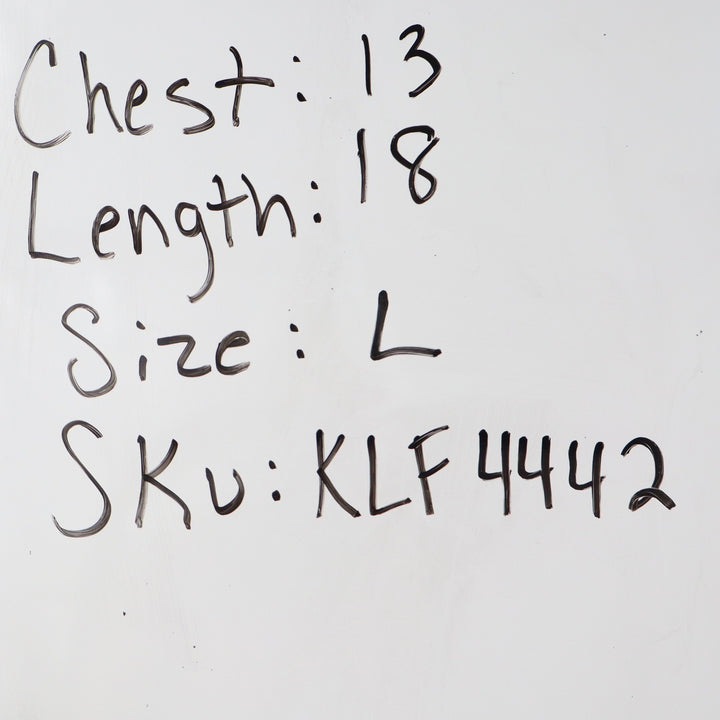 Chest: 13
Length: 18
Size: L
SKU: KLF4442